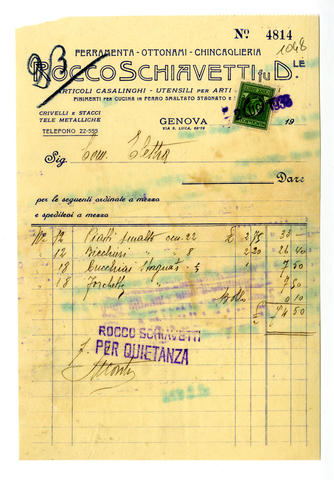 Nº 4814
23
1048
FERRAMENTA - OTTONAMI - CHINCAGLIERIA
ROCCO SCHIAVETTI fu D.LE
ARTICOLI CASALINGHI - UTENSILI PER ARTI
FINIMENTI PER CUCINA IN FERRO SMALTATO STAGNATO E
CRIVELLI E STACCI
TELE METALLICHE
TELEFONO 22-559
GENOVA
VIA S. LUCA,
19
Sig.
Dare
per le seguenti ordinate a mezzo
e speditesi a mezzo
12 Piatti smalto cm. 22 £ 2 75 33 —
12 Bicchieri " 8 2 20 26 40
18 Cucchiai Stagnati 7 50
18 7 50
Bollo 0 10
4 50
ROCCO SCHIAVETTI
PER QUIETANZA